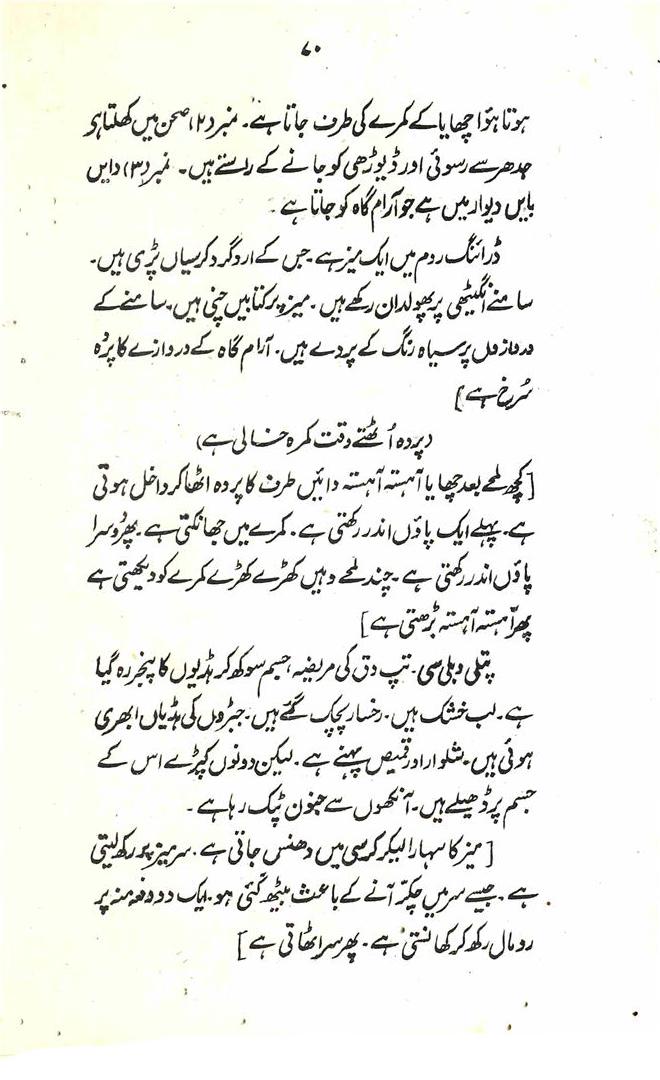 ۷۰
ہوتا ہوُا چھایا کے کمرے کی طرف جاتا ہے۔ نمبر (۲) صحن میں کھلتا ہی
جدھر سے رسوئی اور ڈیوڑھی کو جانے کے راستے ہیں۔ نمبر (۳) دایں
بایں دیوار میں ہے جو آرام گاہ کو جاتا ہے۔
ڈرائنگ روم میں ایک میز ہے۔ جس کے اردگرد کرسیاں پڑی ہیں۔
سامنے انگیٹھی پر پھولدان رکھے ہیں۔ میز پر کتابیں چنی ہیں۔ سامنے کے
دروازوں پر سیاہ رنگ کے پردے ہیں۔ آرام گاہ کے دروازے کا پردہ
سُرخ ہے]
(پردہ اُٹھتے وقت کمرہ خالی ہے)
[کچھ لمحے بعد چھایا آہستہ آہستہ دائیں طرف کا پردہ اٹھا کر داخل ہوتی
ہے۔ پہلے ایک پاؤں اندر رکھتی ہے۔ کمرے میں جھانکتی ہے۔ پھر دوسرا
پاؤں اندر رکھتی ہے۔ چند لمحے وہیں کھڑے کھڑے کمرے کو دیکھتی ہے
پھر آہستہ آہستہ بڑھتی ہے]
پتلی دبلی سی۔ تپ دق کی مریضہ جسم سوکھ کر ہڈیوں کا پنجر رہ گیا
ہے۔ لب خشک ہیں۔ رخسار پچک گئے ہیں۔ جبڑوں کی ہڈیاں ابھری
ہوئی ہیں۔ شلوار اور قمیص پہنے ہے۔ لیکن دونوں کپڑے اس کے
جسم پر ڈھیلے ہیں۔ آنکھوں سے جنون ٹپک رہا ہے۔
[میز کا سہارا لیکر کرسی میں دھنس جاتی ہے۔ سر میز پر رکھ لیتی
ہے۔ جیسے سر میں چکّر آنے کے باعث بیٹھ گئی ہو۔ ایک دو دفعہ منہ پر
رومال رکھ کر کھانستی ہے۔ پھر سر اٹھاتی ہے]